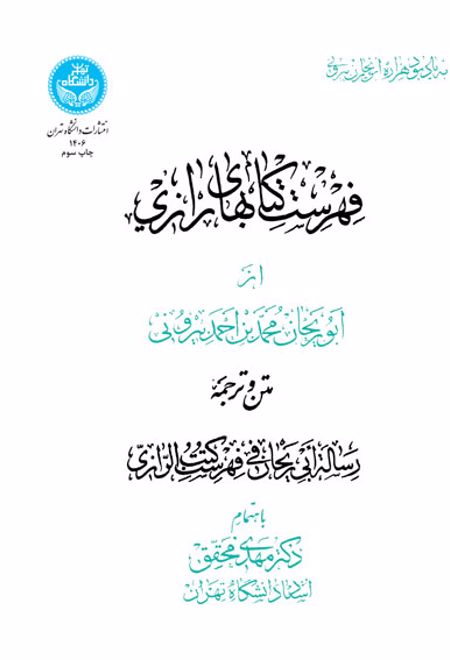 به یادبود هزارهٔ ابوریحان بیرونی
دانشگاه تهران
انتشارات دانشگاه تهران
۱۴۰۶
چاپ سوم
فهرست کتابهای رازی
از
ابوریحان محمد بن احمد بیرونی
متن و ترجمهٔ
رسالة أبی ریحان فی فهرست کتب الرازی
باهتمام
دکتر مهدی محقق
استاد دانشگاه تهران